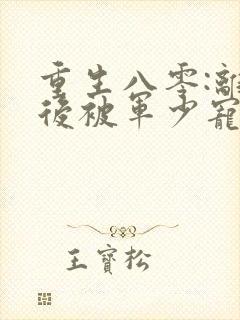 重生八零:離
後被軍少寵
王寶松